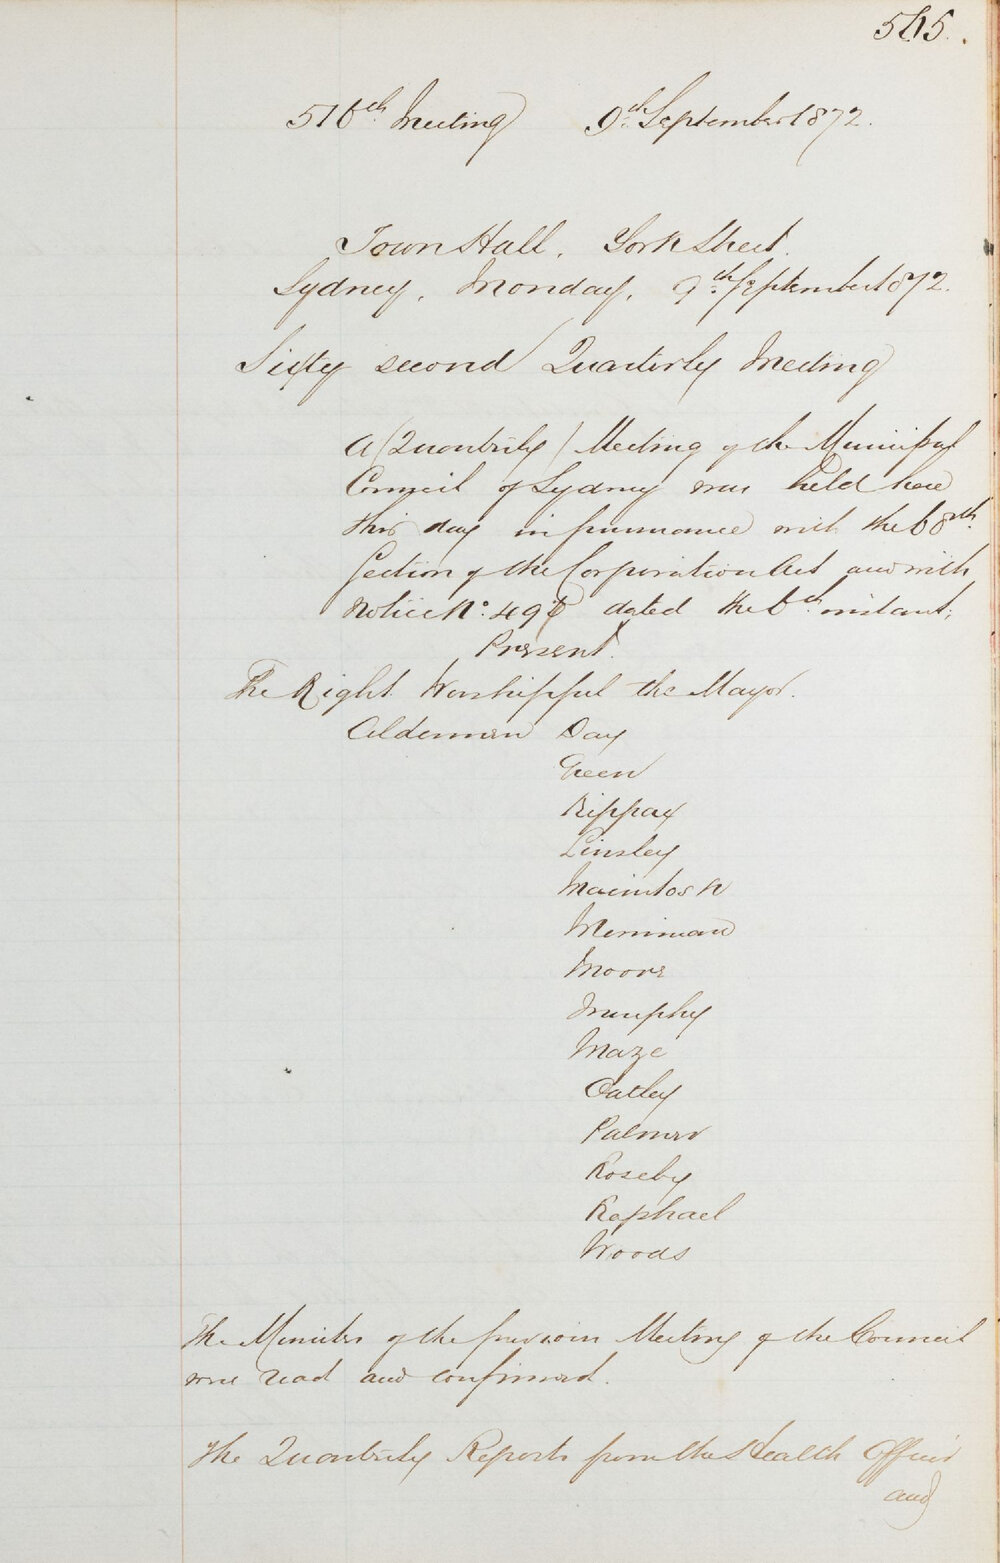 565.
516th Meeting 9th September 1872.
Town Hall, York Street.
Sydney, Monday, 9th September 1872.
Sixty second Quarterly Meeting
A (Quarterly) Meeting of the Municipal
Council of Sydney was held here
this day in pursuance with the 68th
Section of the Corporation Act and with
Notice No. 496 dated the 6th instant;
Present.
The Right Worshipful the Mayor.
Aldermen Day
Green
Kippax
Linsley
Macintosh
Merriman
Moore
Murphy
Maze
Oatley
Palmer
Roseby
Raphael
Woods
The Minutes of the previous Meeting of the Council
were read and confirmed.
The Quarterly Reports from the Health Officer
and